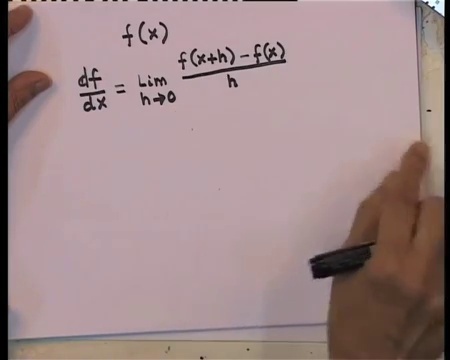 f(x)
df/dx = Lim h→0 f(x+h) – f(x) / h